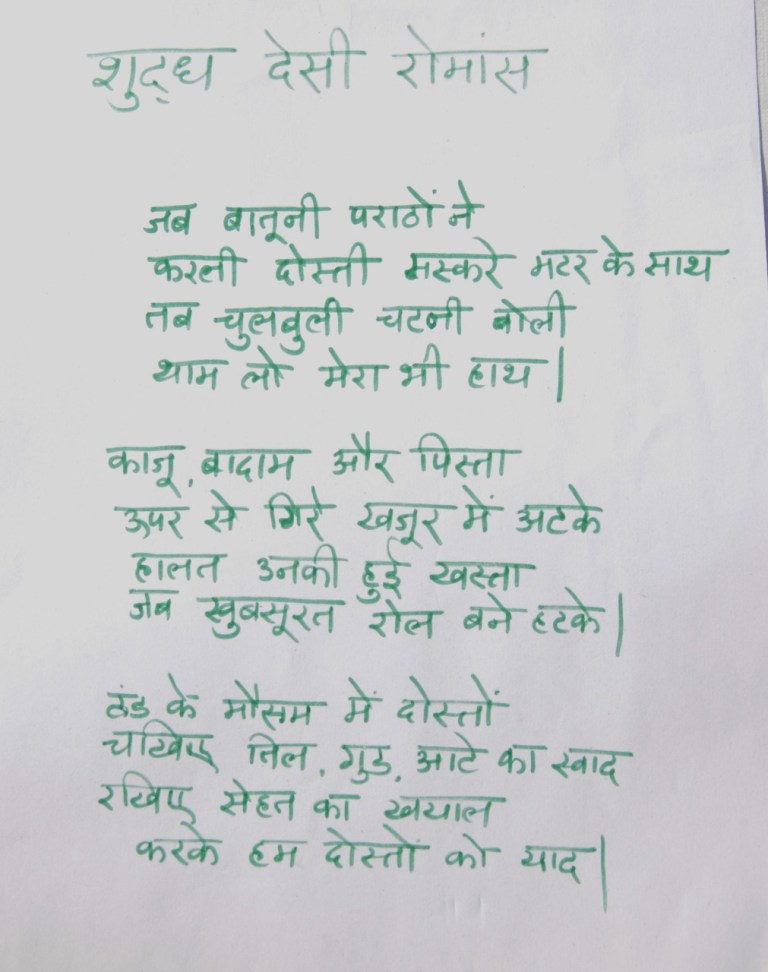 शुद्ध देसी रोमांस
जब बातूनी पराठों ने
करली दोस्ती मस्करे मटर के साथ
तब चुलबुली चटनी बोली
थाम लो मेरा भी हाथ |
काजू, बादाम और पिस्ता
ऊपर से गिरे खजूर में अटके
हालत उनकी हुई खस्ता
जब खुबसूरत रोल बने हटके |
ठंड के मौसम में दोस्तों
चखिए तिल, गुड, आटे का स्वाद
रखिए सेहत का खयाल
करके हम दोस्तों को याद |